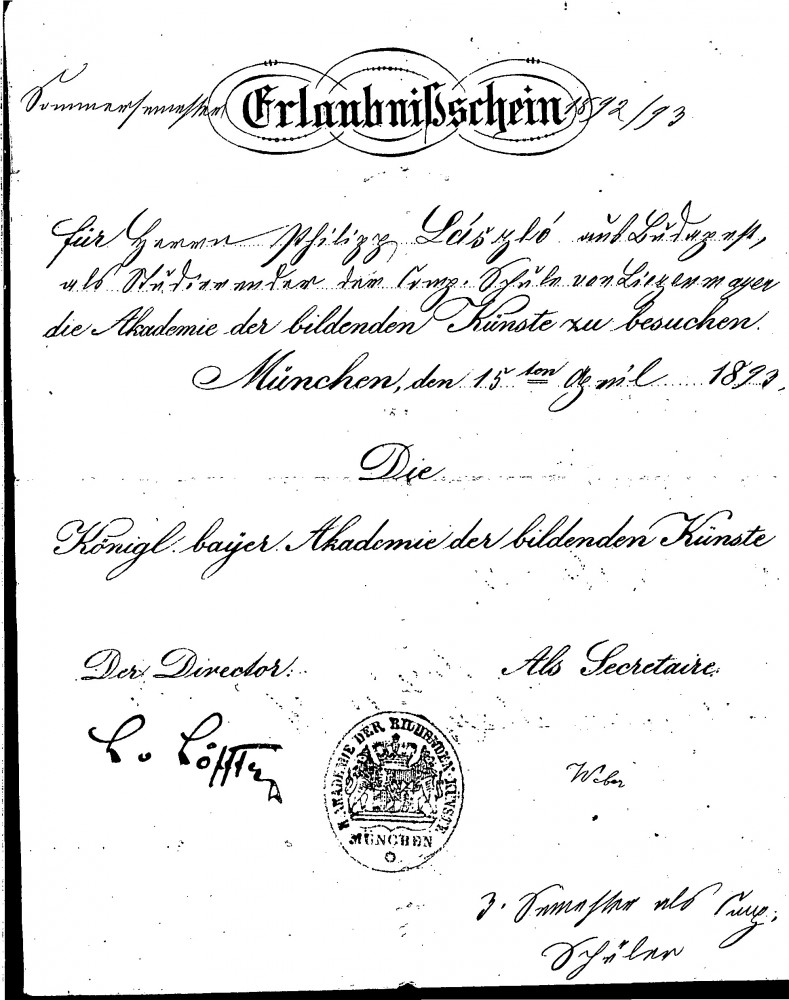 Sommersemester Erlaubnißschein 1892/93
für Herrn Philipp László aus Budapest,
als Studierender der Comp. Schule von Liezenmayer
die Akademie der bildenden Künste zu besuchen.
München, den 15ten April 1893.
Die
Königl. bayer. Akademie der bildenden Künste
Der Director: Als Secretaire:
L. v Löfftz
Weber
K. AKADEMIE DER BILDENDEN KÜNSTE
MÜNCHEN
3. Semester als Comp.
Schüler